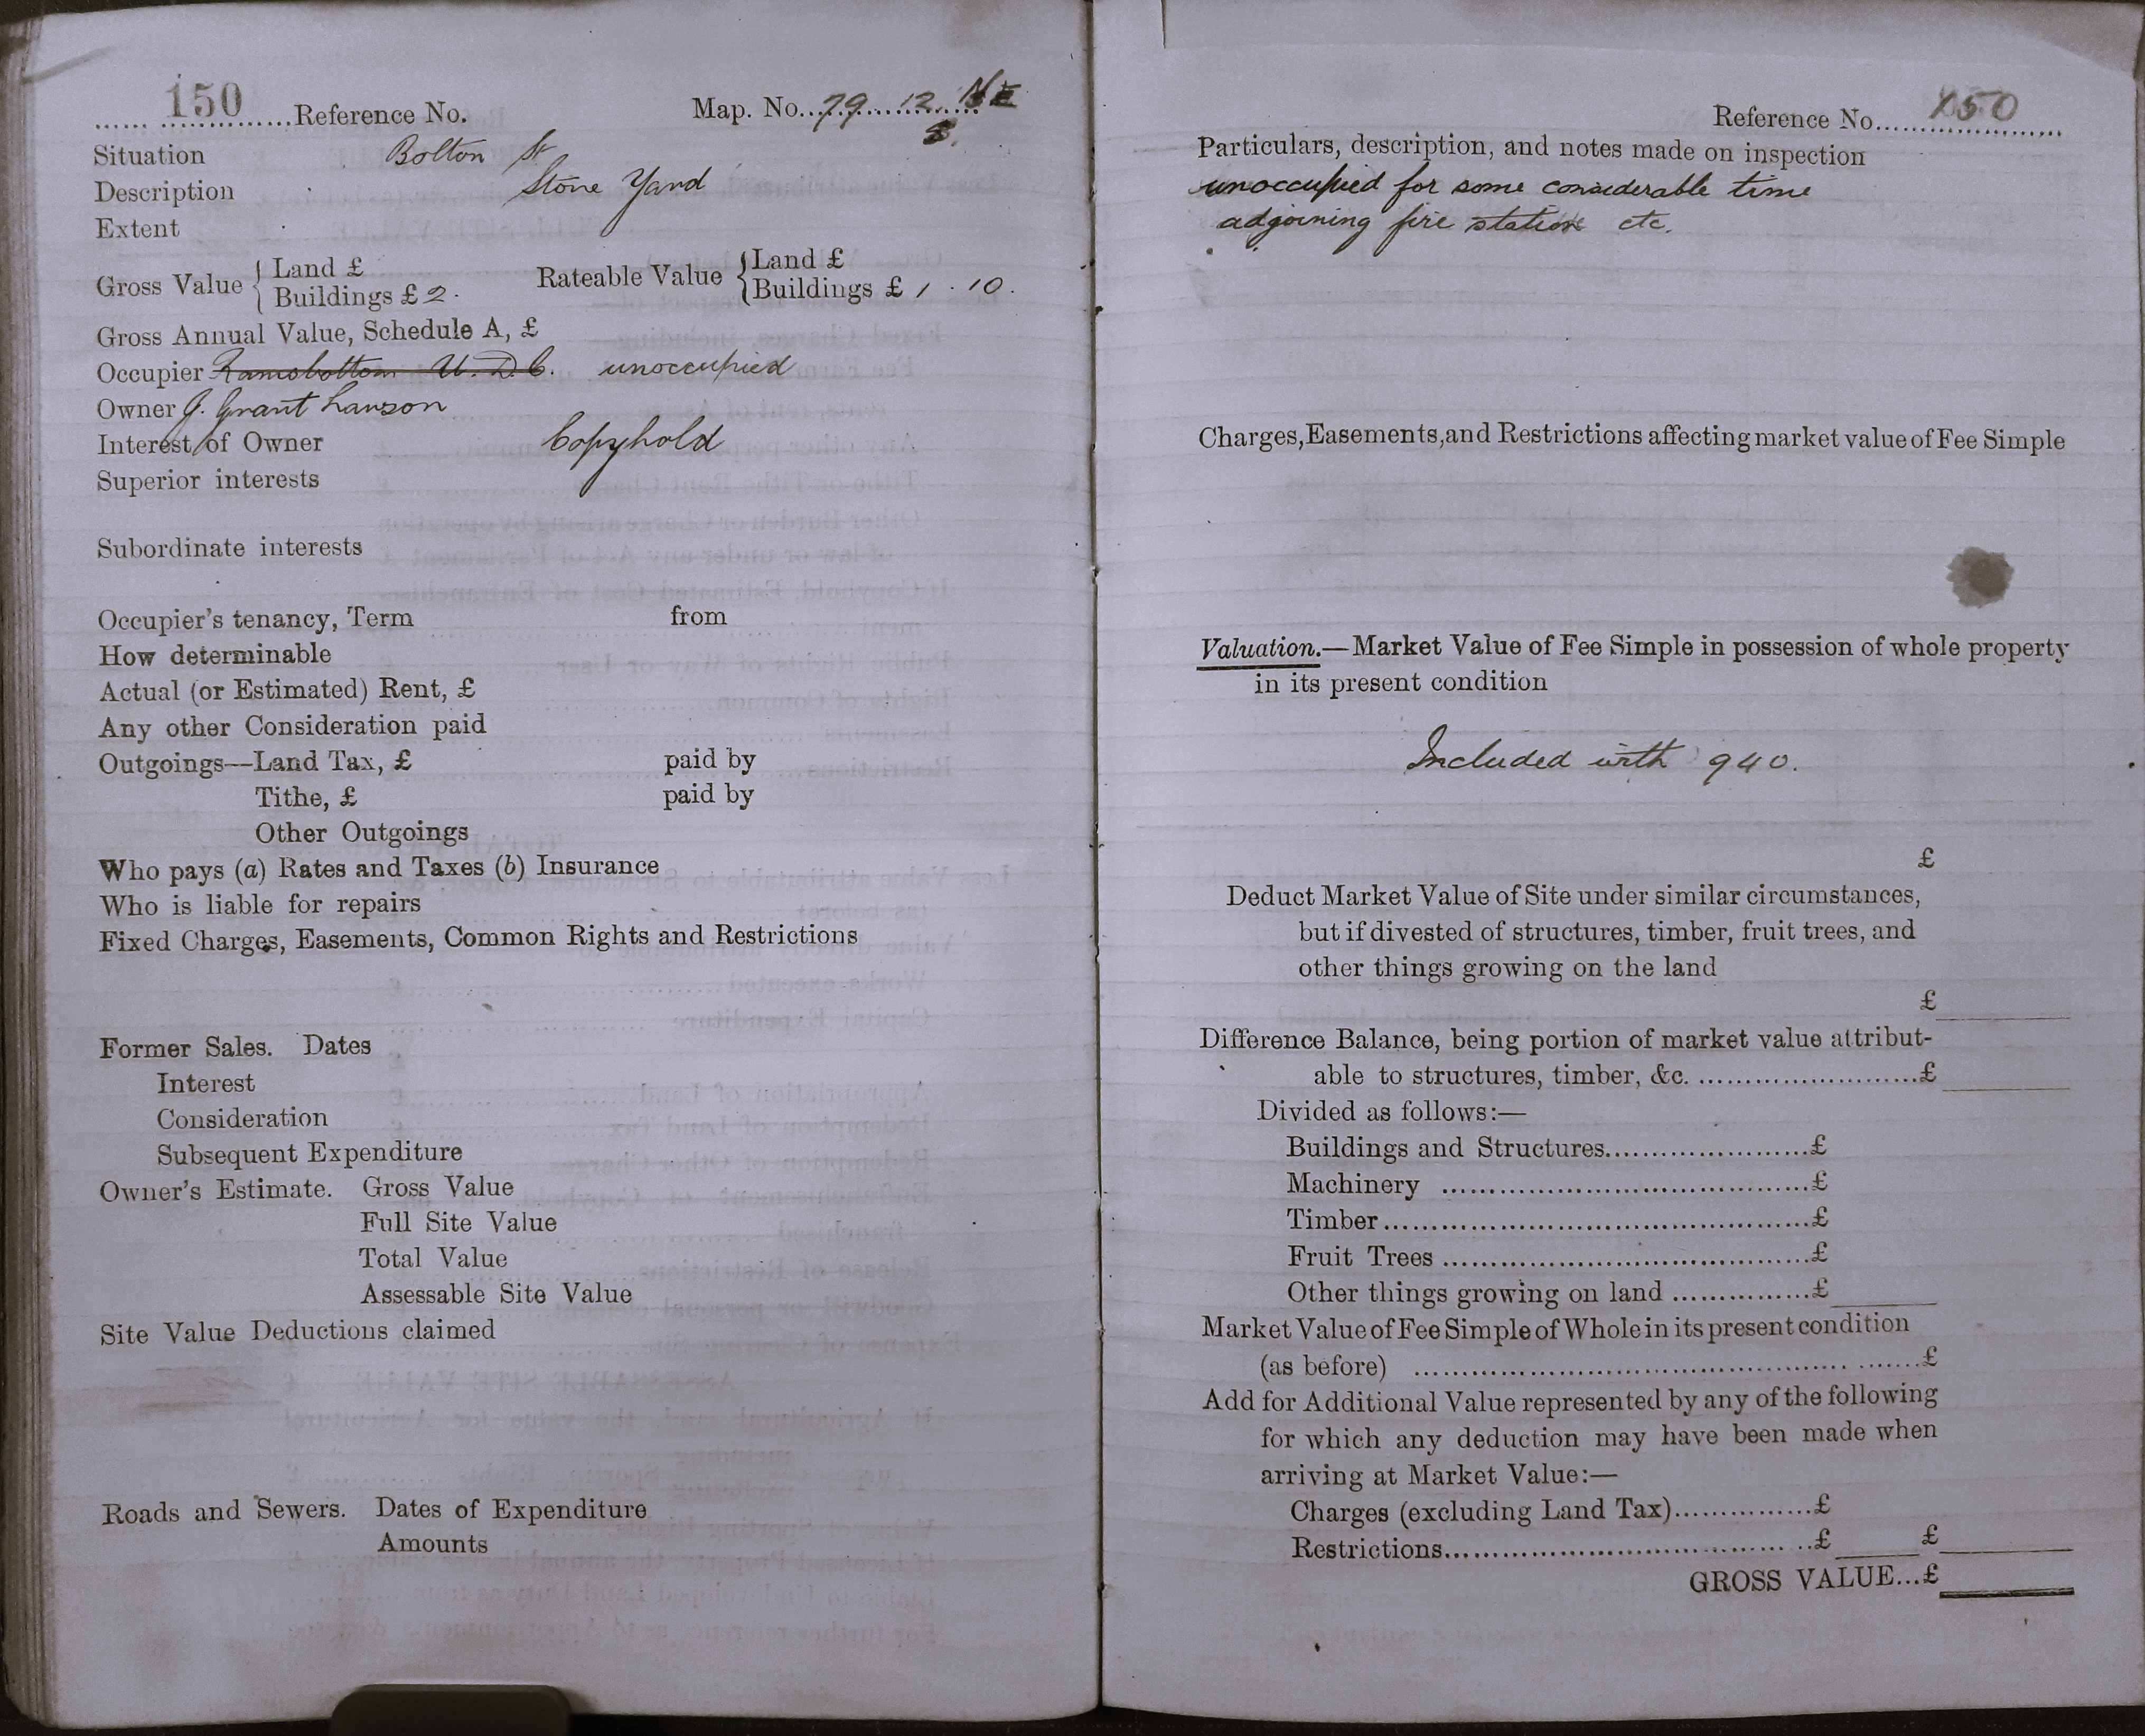 150 Reference No. Map. No. 79. 12. NE
8.
Situation Bolton St
Description Stone Yard
Extent
Gross Value { Land £
Buildings £ 2. Rateable Value { Land £
Buildings £ 1 . 10.
Gross Annual Value, Schedule A, £
Occupier Ramsbottom U. D. C. unoccupied
Owner J. Grant Lawson
Interest of Owner Copyhold
Superior interests
Subordinate interests
Occupier's tenancy, Term from
How determinable
Actual (or Estimated) Rent, £
Any other Consideration paid
Outgoings—Land Tax, £ paid by
Tithe, £ paid by
Other Outgoings
Who pays (a) Rates and Taxes (b) Insurance
Who is liable for repairs
Fixed Charges, Easements, Common Rights and Restrictions
Former Sales. Dates
Interest
Consideration
Subsequent Expenditure
Owner's Estimate. Gross Value
Full Site Value
Total Value
Assessable Site Value
Site Value Deductions claimed
Roads and Sewers. Dates of Expenditure
Amounts
Reference No. 150
Particulars, description, and notes made on inspection
unoccupied for some considerable time
adjoining fire station etc.
Charges, Easements, and Restrictions affecting market value of Fee Simple
Valuation.—Market Value of Fee Simple in possession of whole property
in its present condition
Included with 940.
£
Deduct Market Value of Site under similar circumstances,
but if divested of structures, timber, fruit trees, and
other things growing on the land
£
Difference Balance, being portion of market value attribut-
able to structures, timber, &c. £
Divided as follows:—
Buildings and Structures £
Machinery £
Timber £
Fruit Trees £
Other things growing on land £
Market Value of Fee Simple of Whole in its present condition
(as before) £
Add for Additional Value represented by any of the following
for which any deduction may have been made when
arriving at Market Value:—
Charges (excluding Land Tax) £
Restrictions £ £
GROSS VALUE...£